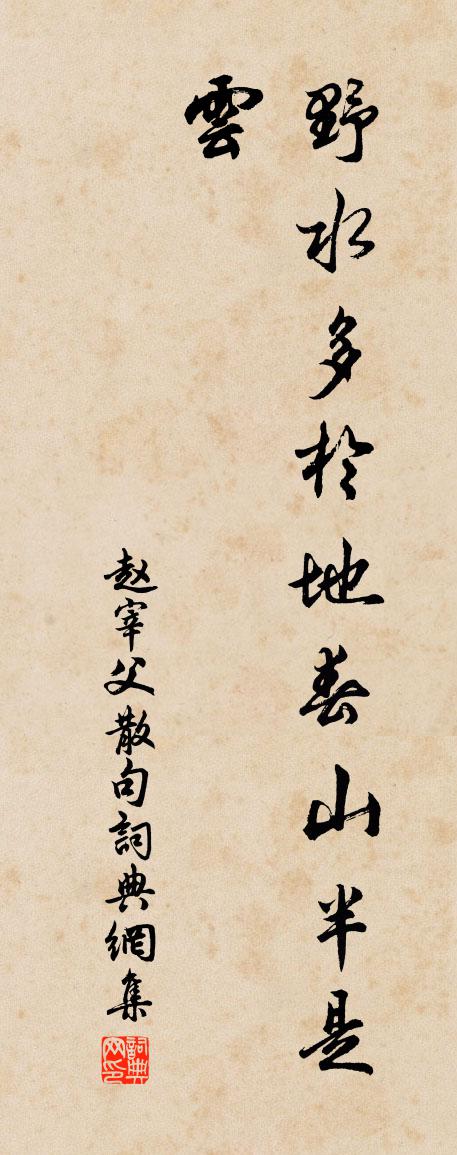 野水多於地春山半是
雲
赵宰父散句詞典網集
詞典
网印